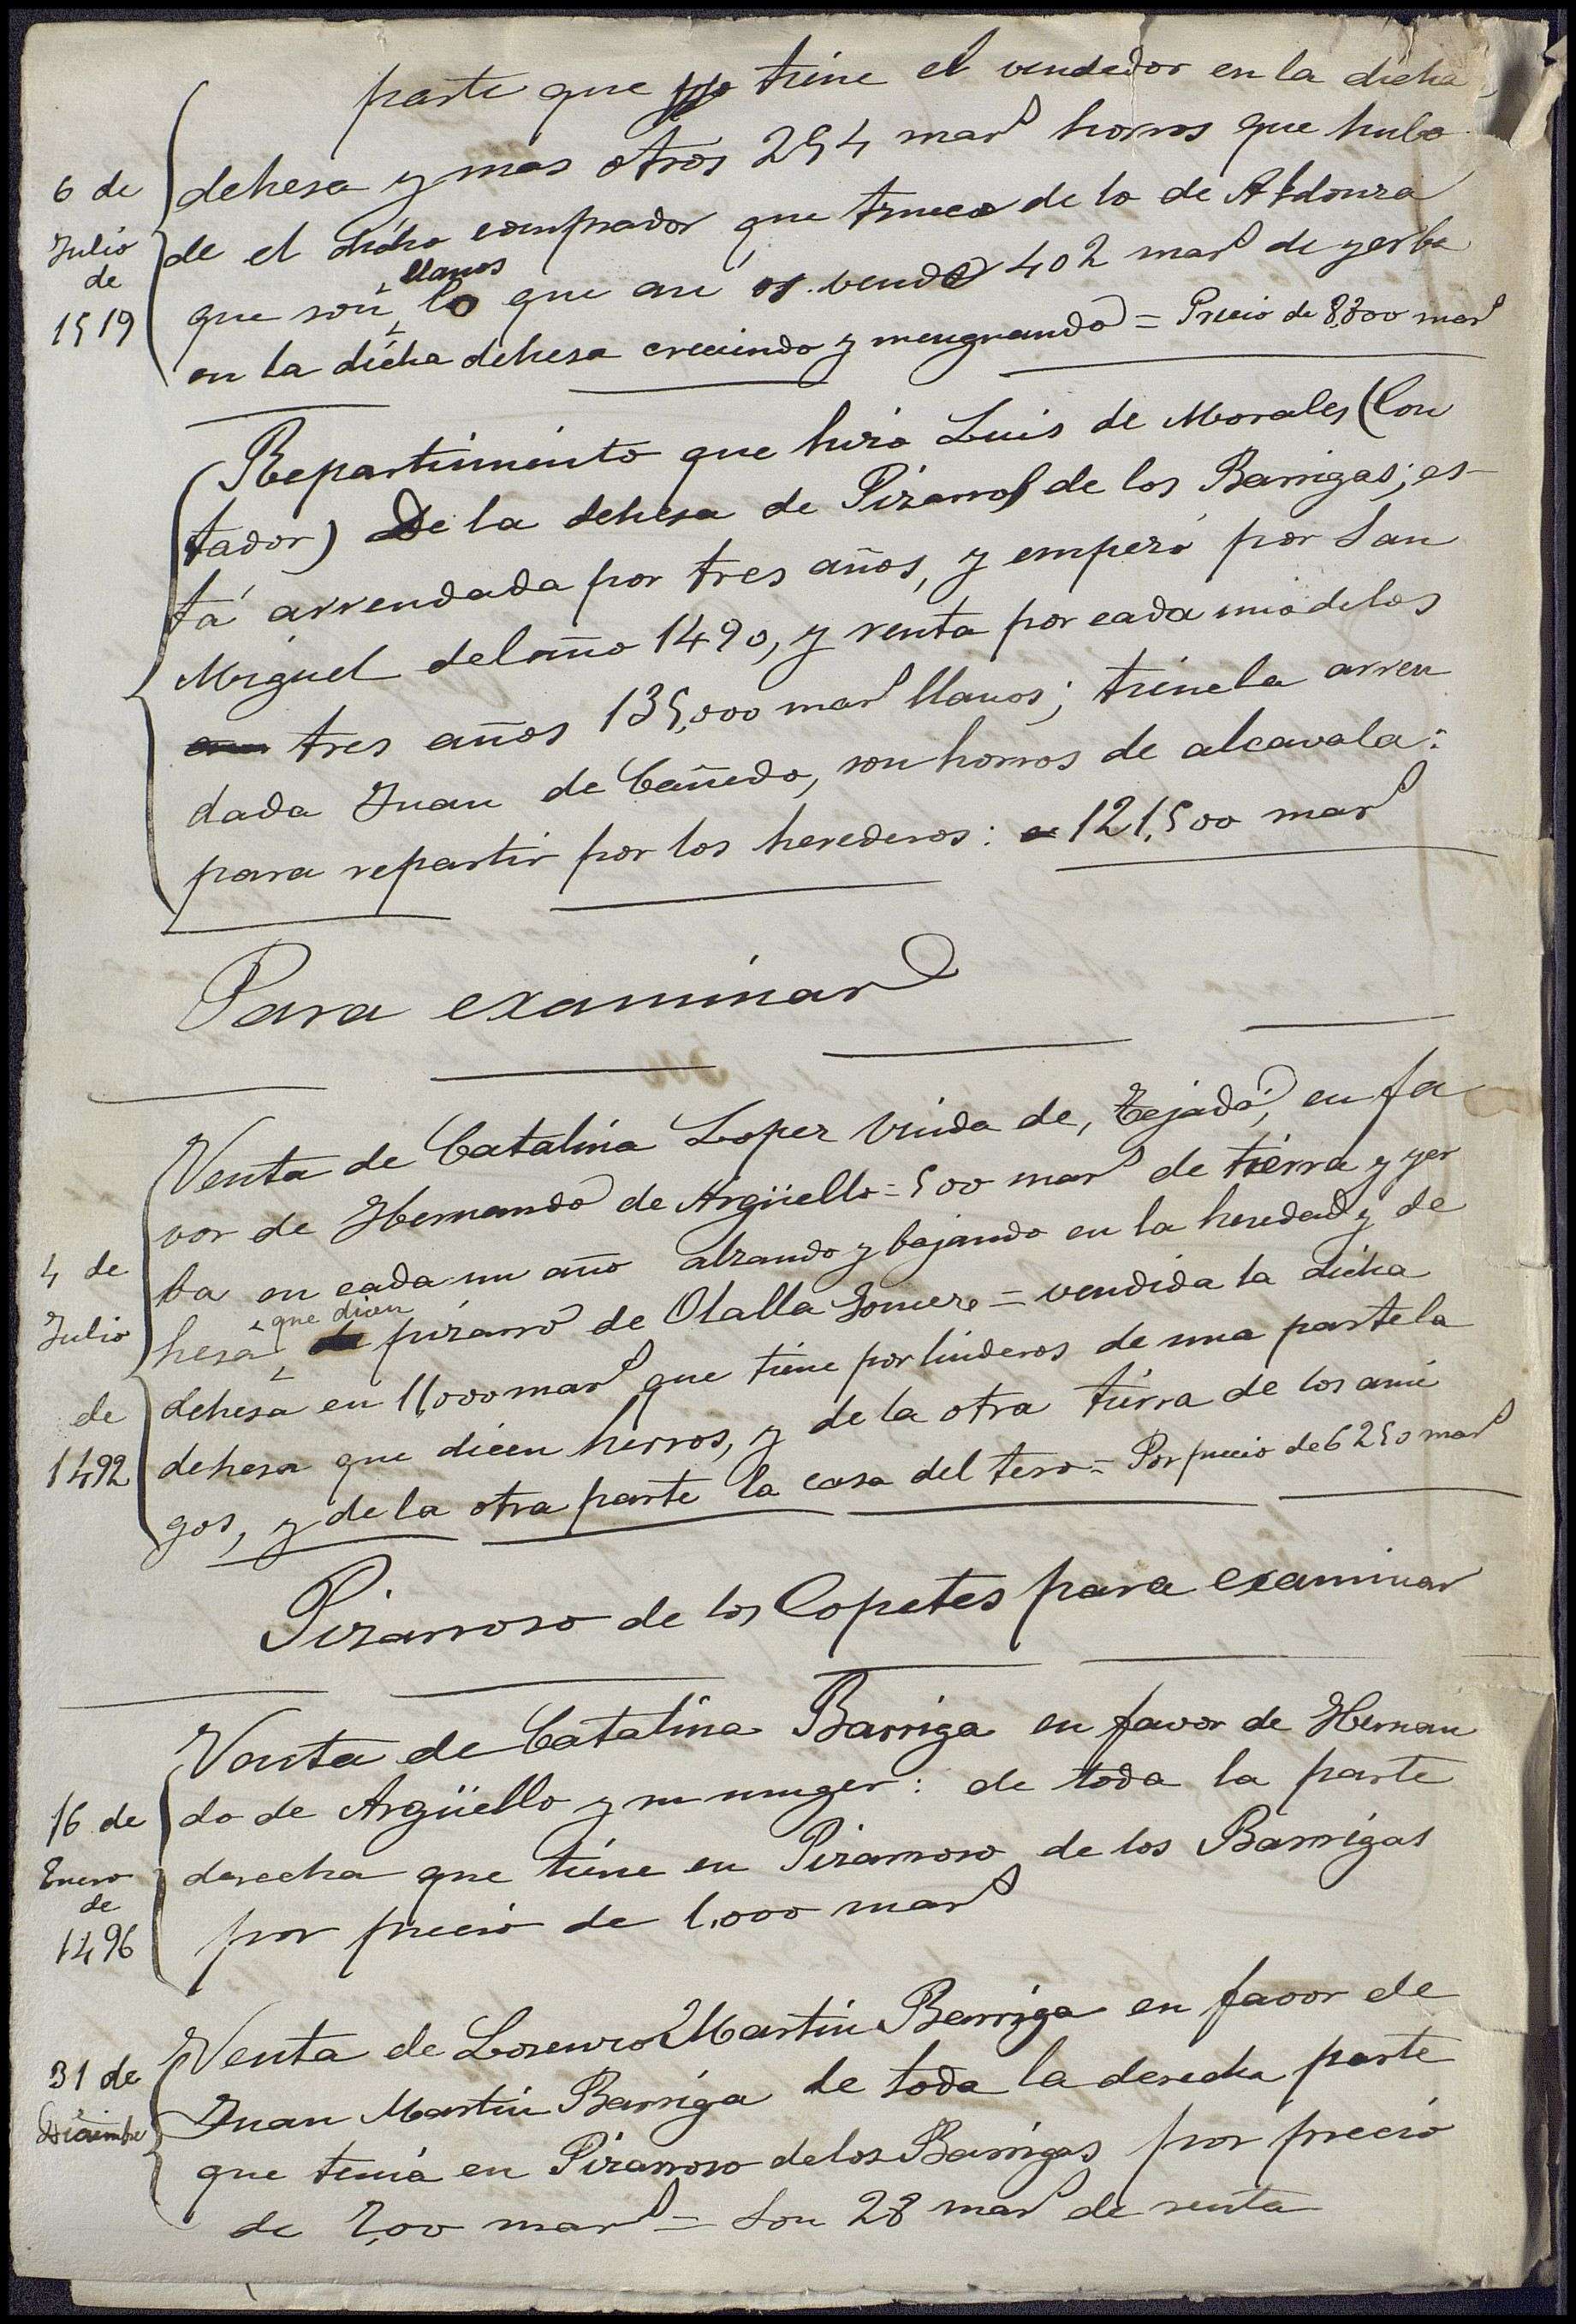 parte que yo tiene el vendedor en la dicha
dehesa y mas otros 254 mar^s horros que hubo
6 de Julio de 1519
de el dicho comprador que trueca de lo de Aldonza
que son llanos lo que asi os vendo 402 mar^s de yerba
en la dicha dehesa creciendo y menguando = Precio de 8,800 mar^s
Repartimiento que hizo Luis de Morales (Con
tador) De la dehesa de Pizarros de los Barrigas; es-
tá arrendada por tres años, y empezó por San
Miguel del año 1490, y renta por cada uno de los
tres años 135,000 mar^s llanos; tienela arren
dada Juan de Cañedo, son horros de alcavala:
para repartir por los herederos: 121,500 mar^s
Para examinar
Venta de Catalina Lopez viuda de, Tejada, en fa
vor de Hernando de Argüello = 500 mar^s de tierra y yer
4 de Julio de 1492
ba en cada un año alzando y bajando en la heredad y de
hesa que dicen pizarro de Olalla Gomez = vendida la dicha
dehesa en 11,000 mar^s que tiene por linderos de una parte la
dehesa que dicen hierros, y de la otra tierra de los ami
gos, y de la otra parte la casa del teso = Por precio de 6250 mar^s
Pizarroso de los Copetes para examinar
Venta de Catalina Barriga en favor de Hernan
16 de Enero de 1496
do de Argüello y su muger: de toda la parte
derecha que tiene en Pizarroso de los Barrigas
por precio de 1,000 mar^s
Venta de Lorenzo Martin Barriga en favor de
31 de Diciembre
Juan Martin Barriga de toda la derecha parte
que tenia en Pizarroso de los Barrigas por precio
de 700 mar^s = Son 28 mar^s de renta